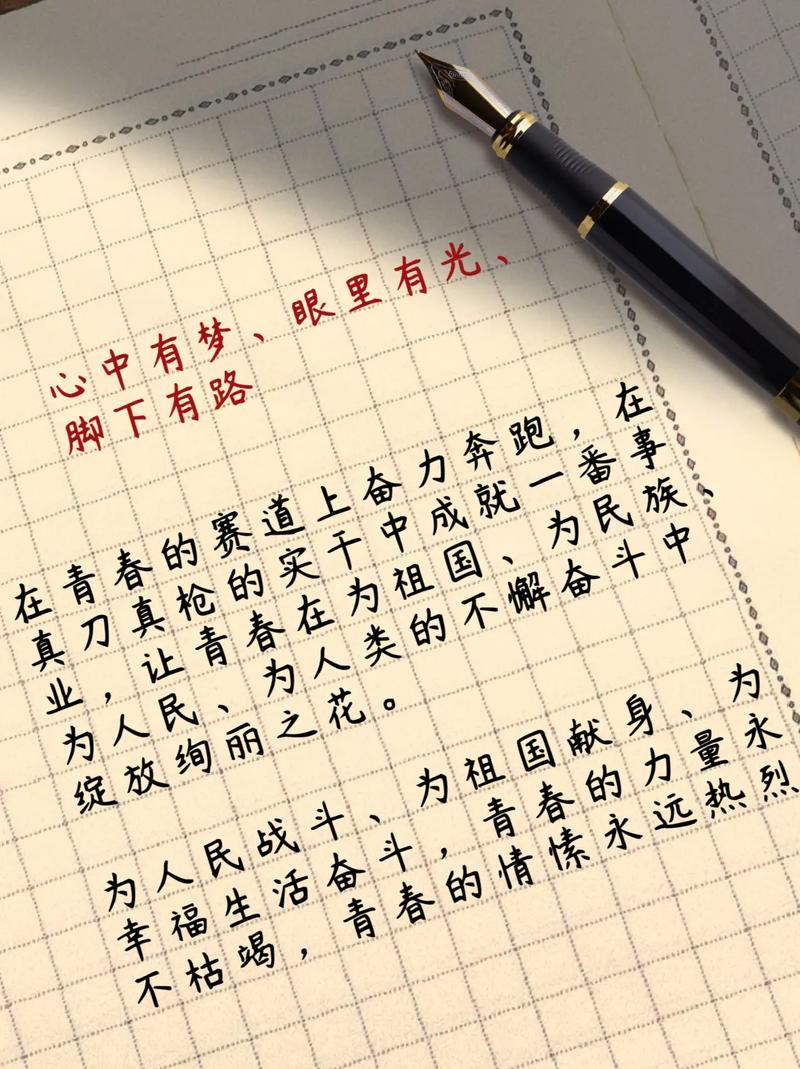 心中有梦、眼里有光、
脚下有路
在青春的赛道上奋力奔跑，在
真刀真枪的实干中成就一番事
业，让青春在为祖国、为民族、
为人民、为人类的不懈奋斗中
绽放绚丽之花。
为人民战斗、为祖国献身、为
幸福生活奋斗，青春的力量永
不枯竭，青春的情愫永远热烈